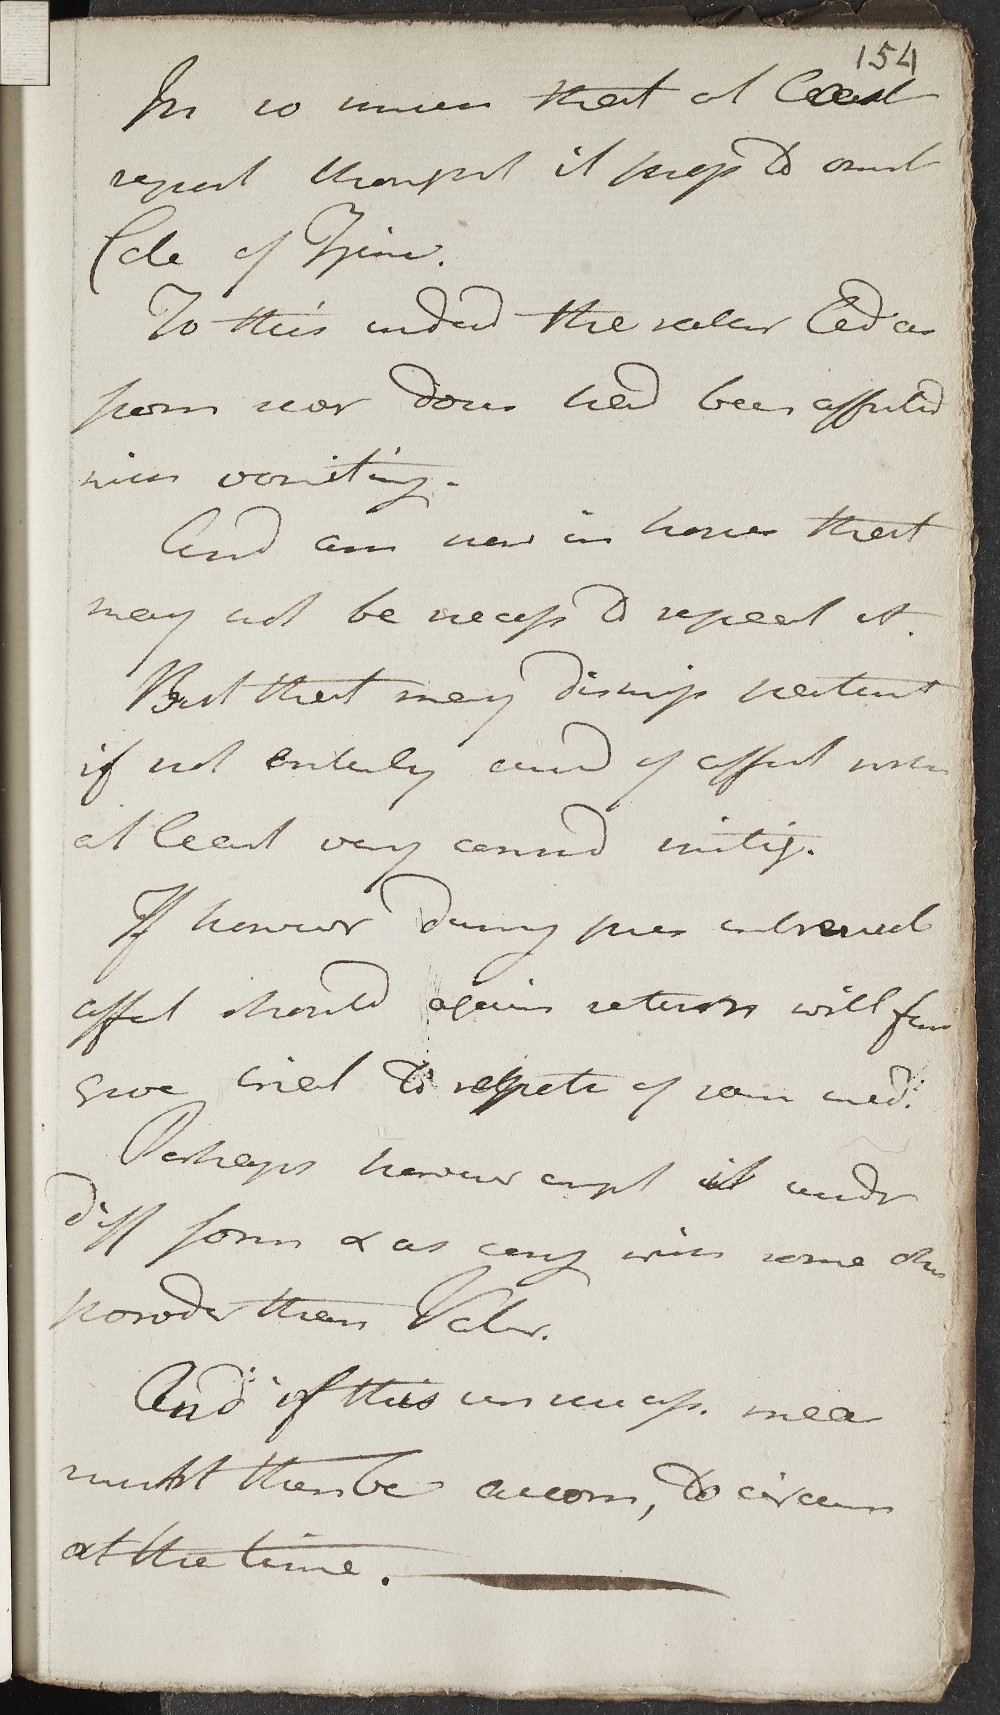 154
In so much that at least
repeat thought it prop to omit
Cole of Time.
To this indeed the rather led as
from nor does had been affected
with vomiting.
And am now in hopes that
may not be necess to repeat it.
But that may dismiss patient
if not entirely cured of affect
at least very consid mitig.
If however during pres
affect should again return will
give trial to repete of same med:
Perhaps however empl it under
diff form & as may with some other
powder than Valer.
And if this unsuccess. mea
must then be accom, to circum
at the time.